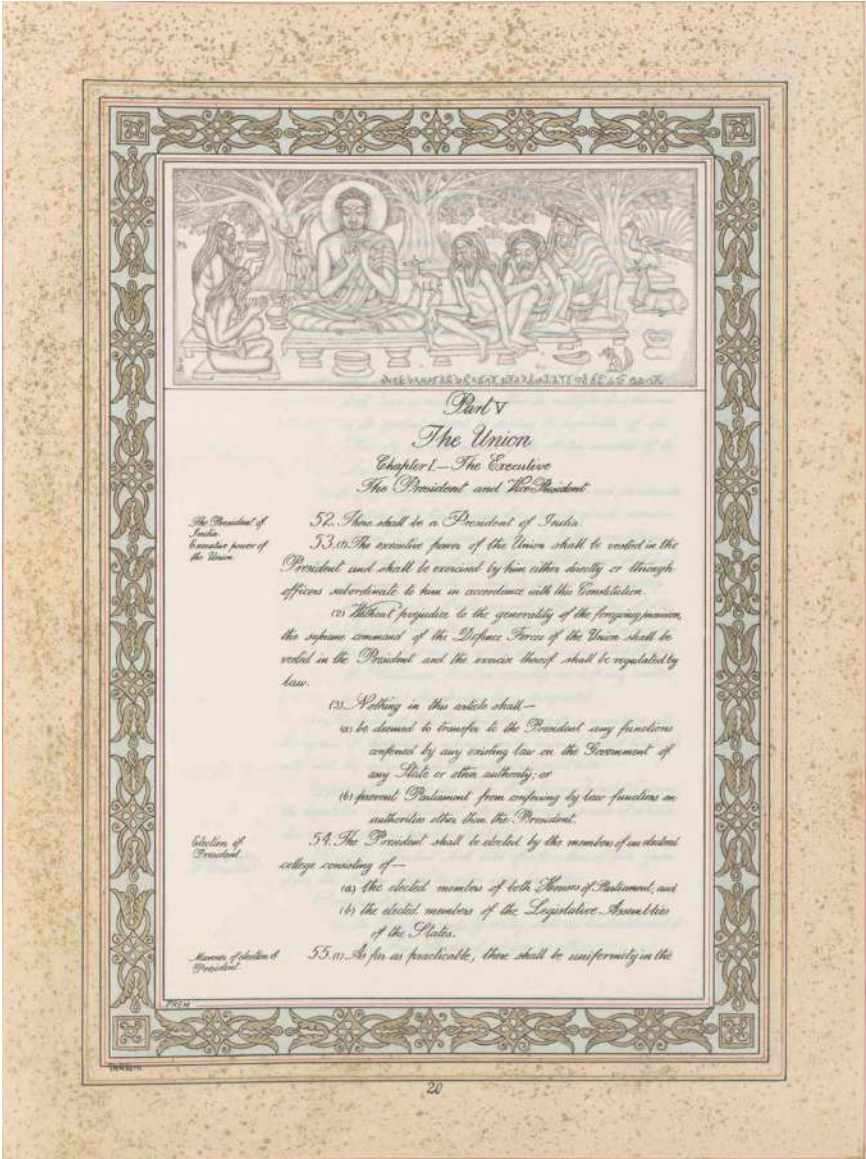 Part V
The Union
Chapter I — The Executive
The President and Vice-President
The President of
India.
52. There shall be a President of India.
Executive power of
the Union.
53. (1) The executive power of the Union shall be vested in the
President and shall be exercised by him either directly or through
officers subordinate to him in accordance with this Constitution.
(2) Without prejudice to the generality of the foregoing provision,
the supreme command of the Defence Forces of the Union shall be
vested in the President and the exercise thereof shall be regulated by
law.
(3) Nothing in this article shall—
(a) be deemed to transfer to the President any functions
conferred by any existing law on the Government of
any State or other authority; or
(b) prevent Parliament from conferring by law functions on
authorities other than the President.
Election of
President.
54. The President shall be elected by the members of an electoral
college consisting of—
(a) the elected members of both Houses of Parliament; and
(b) the elected members of the Legislative Assemblies
of the States.
Manner of election of
President.
55. (1) As far as practicable, there shall be uniformity in the
PREM
20